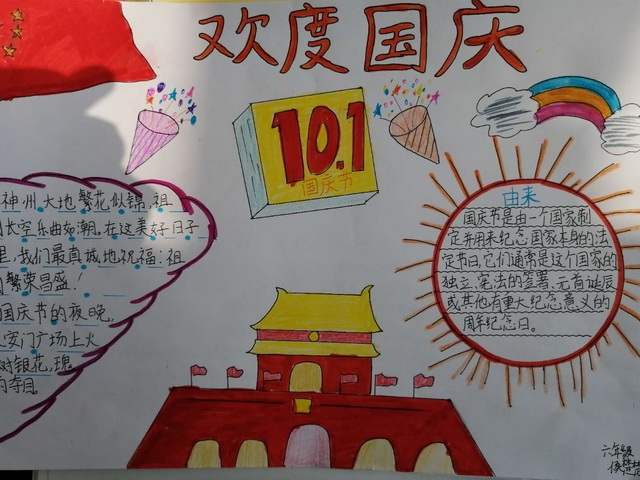 欢度国庆
10.1
国庆节
神州大地繁花似锦,祖
长空乐曲如潮,在这美好日子
里,我们最真诚地祝福:祖
繁荣昌盛!
国庆节的夜晚,
安门广场上火
树银花,瑰
夺目。
由来
国庆节是由一个国家制
定并用来纪念国家本身的法
定节日,它们通常是这个国家的
独立、宪法的签署、元首诞辰
或其他有重大纪念意义的
周年纪念日。
六年级
侯楚